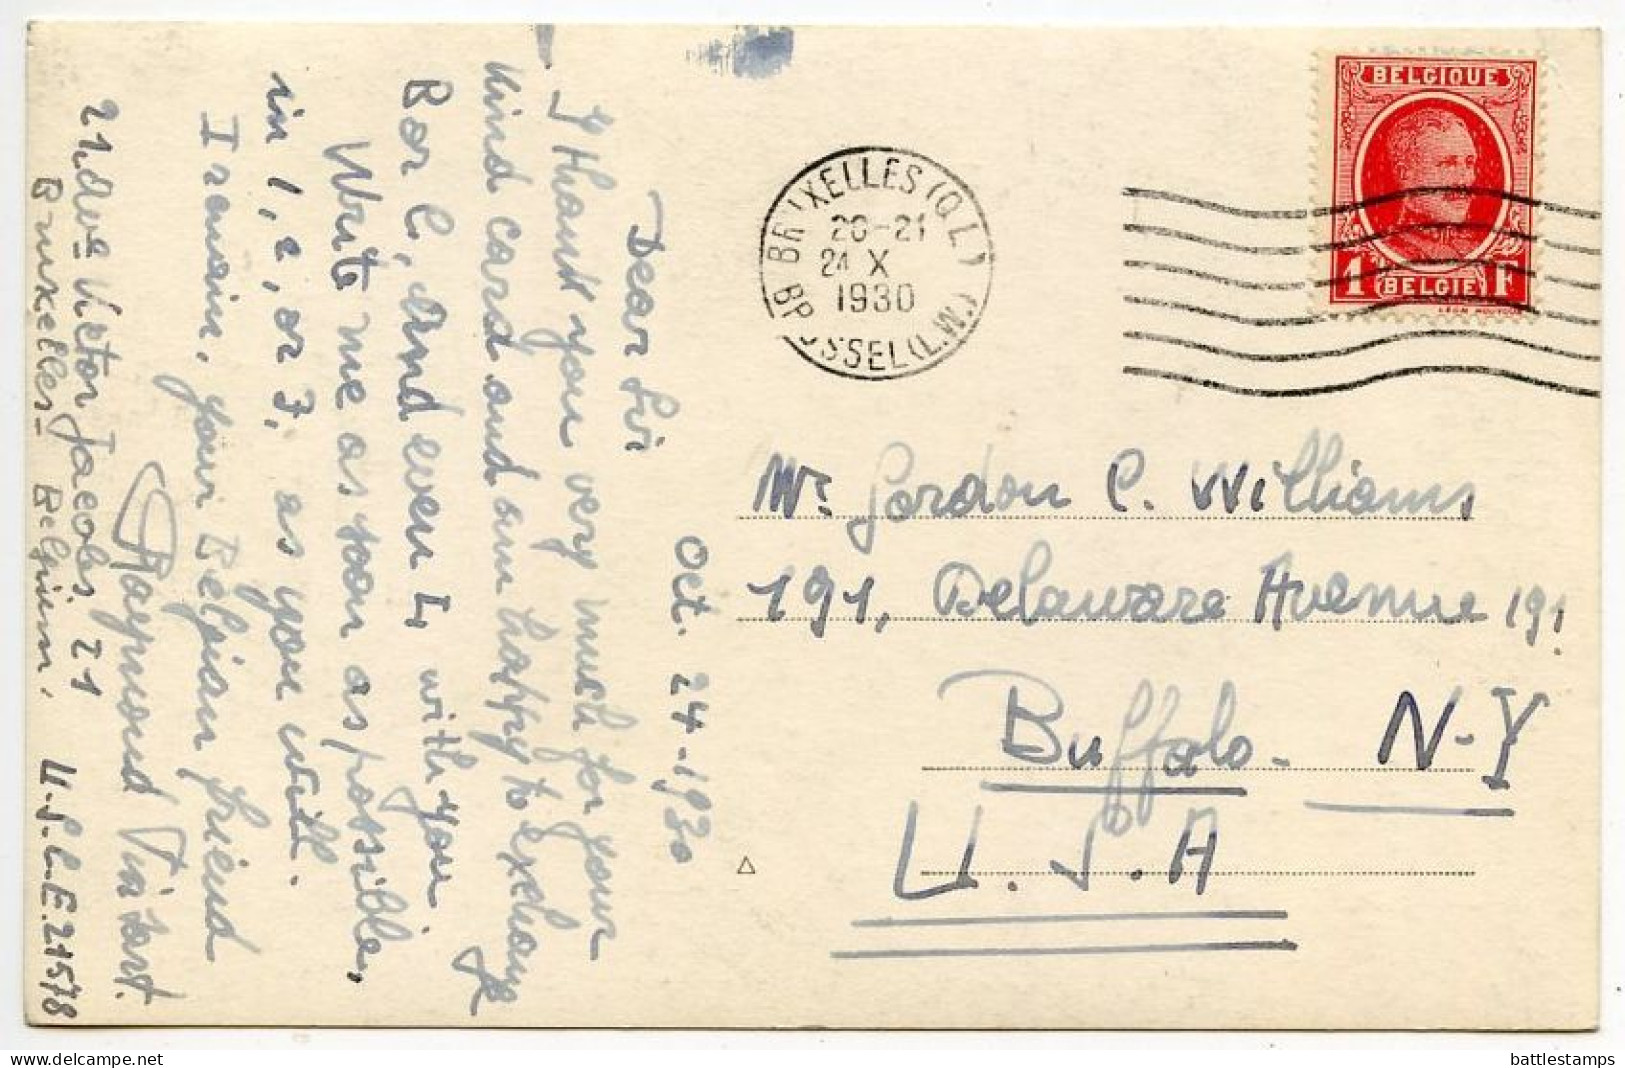 Oct. 24-1930
Dear Sir
I Thank you very much for your
kind card and am happy to Exchange
B or C, And even 4 with you.
Write me as soon as possible,
in 1, 2, or 3, as you wish.
I remain, your Belgian friend
Raymond
21. Ave Victor Jacobs. 21
Bruxelles- Belgium. U.S.C.E. 21578
BRUXELLES (Q.L.)
20-21
24 X
1930
BRUSSEL (L.W.)
BELGIQUE
1 BELGIË F
Mr Gordon C. Williams
191, Delaware Avenue 191
Buffalo. N-Y
U.S.A
battlestamps